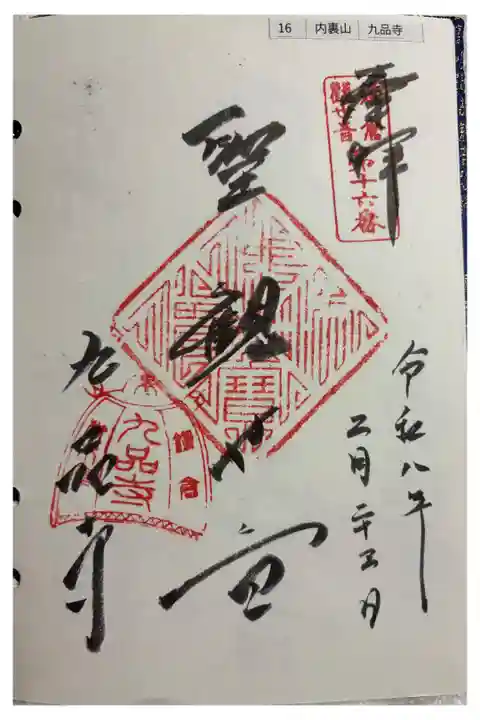 16 内裏山 九品寺
奉拝
鎌倉
観世音
第十六番
令和八年
二月二十五日
聖観世音
三寶
九品寺
鎌倉
九品寺